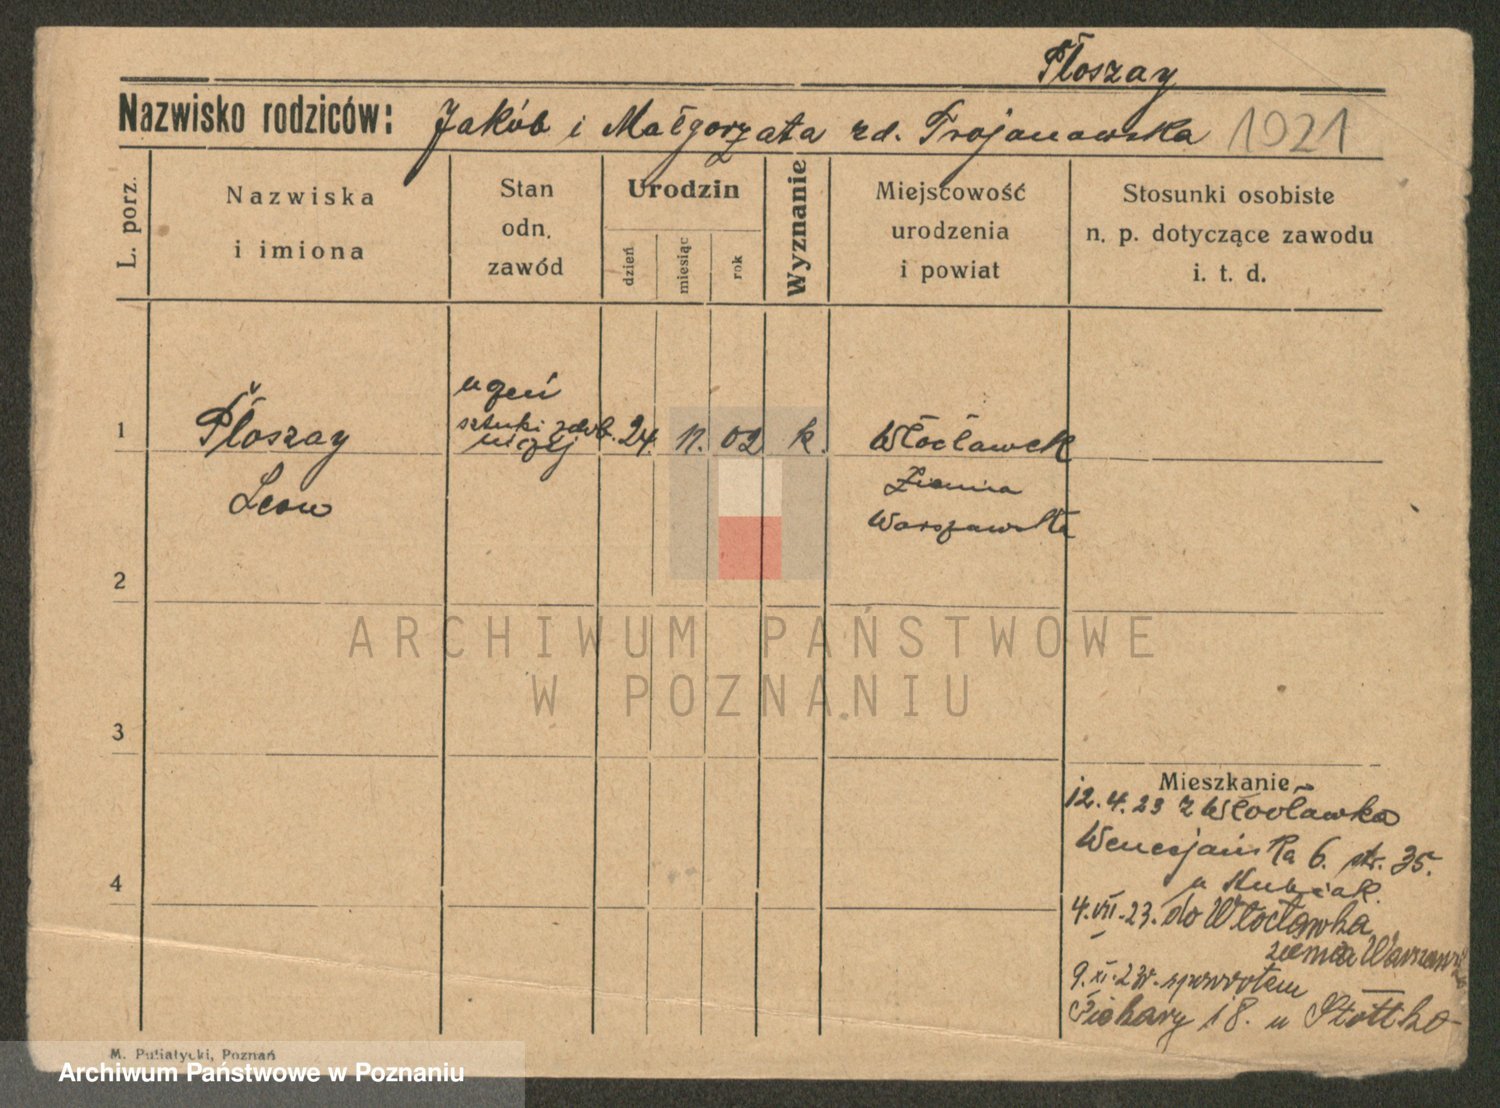 Płoszay
Nazwisko rodziców: Jakób i Małgorzata zd. Trojanowska 1921
L. porz.
Nazwiska
i imiona
Stan
odn.
zawód
Urodzin
dzień
miesiąc
rok
Wyznanie
Miejscowość
urodzenia
i powiat
Stosunki osobiste
n. p. dotyczące zawodu
i. t. d.
1
Płoszay
Leon
uczeń
sztuki zdob.
niczej
24. 11. 02 k.
Włocławek
Ziemia
Warszawska
2
3
4
ARCHIWUM PAŃSTWOWE
W POZNANIU
Mieszkanie
12.4.23 z Włocławka
Wenecjańska 6. str. 35.
u Kubiak.
4.VII.23. do Włocławka
ziemia Warszawsk
9.XI.23r. spowrotem
Piekary 18. u
M. Putiatycki, Poznań
Archiwum Państwowe w Poznaniu